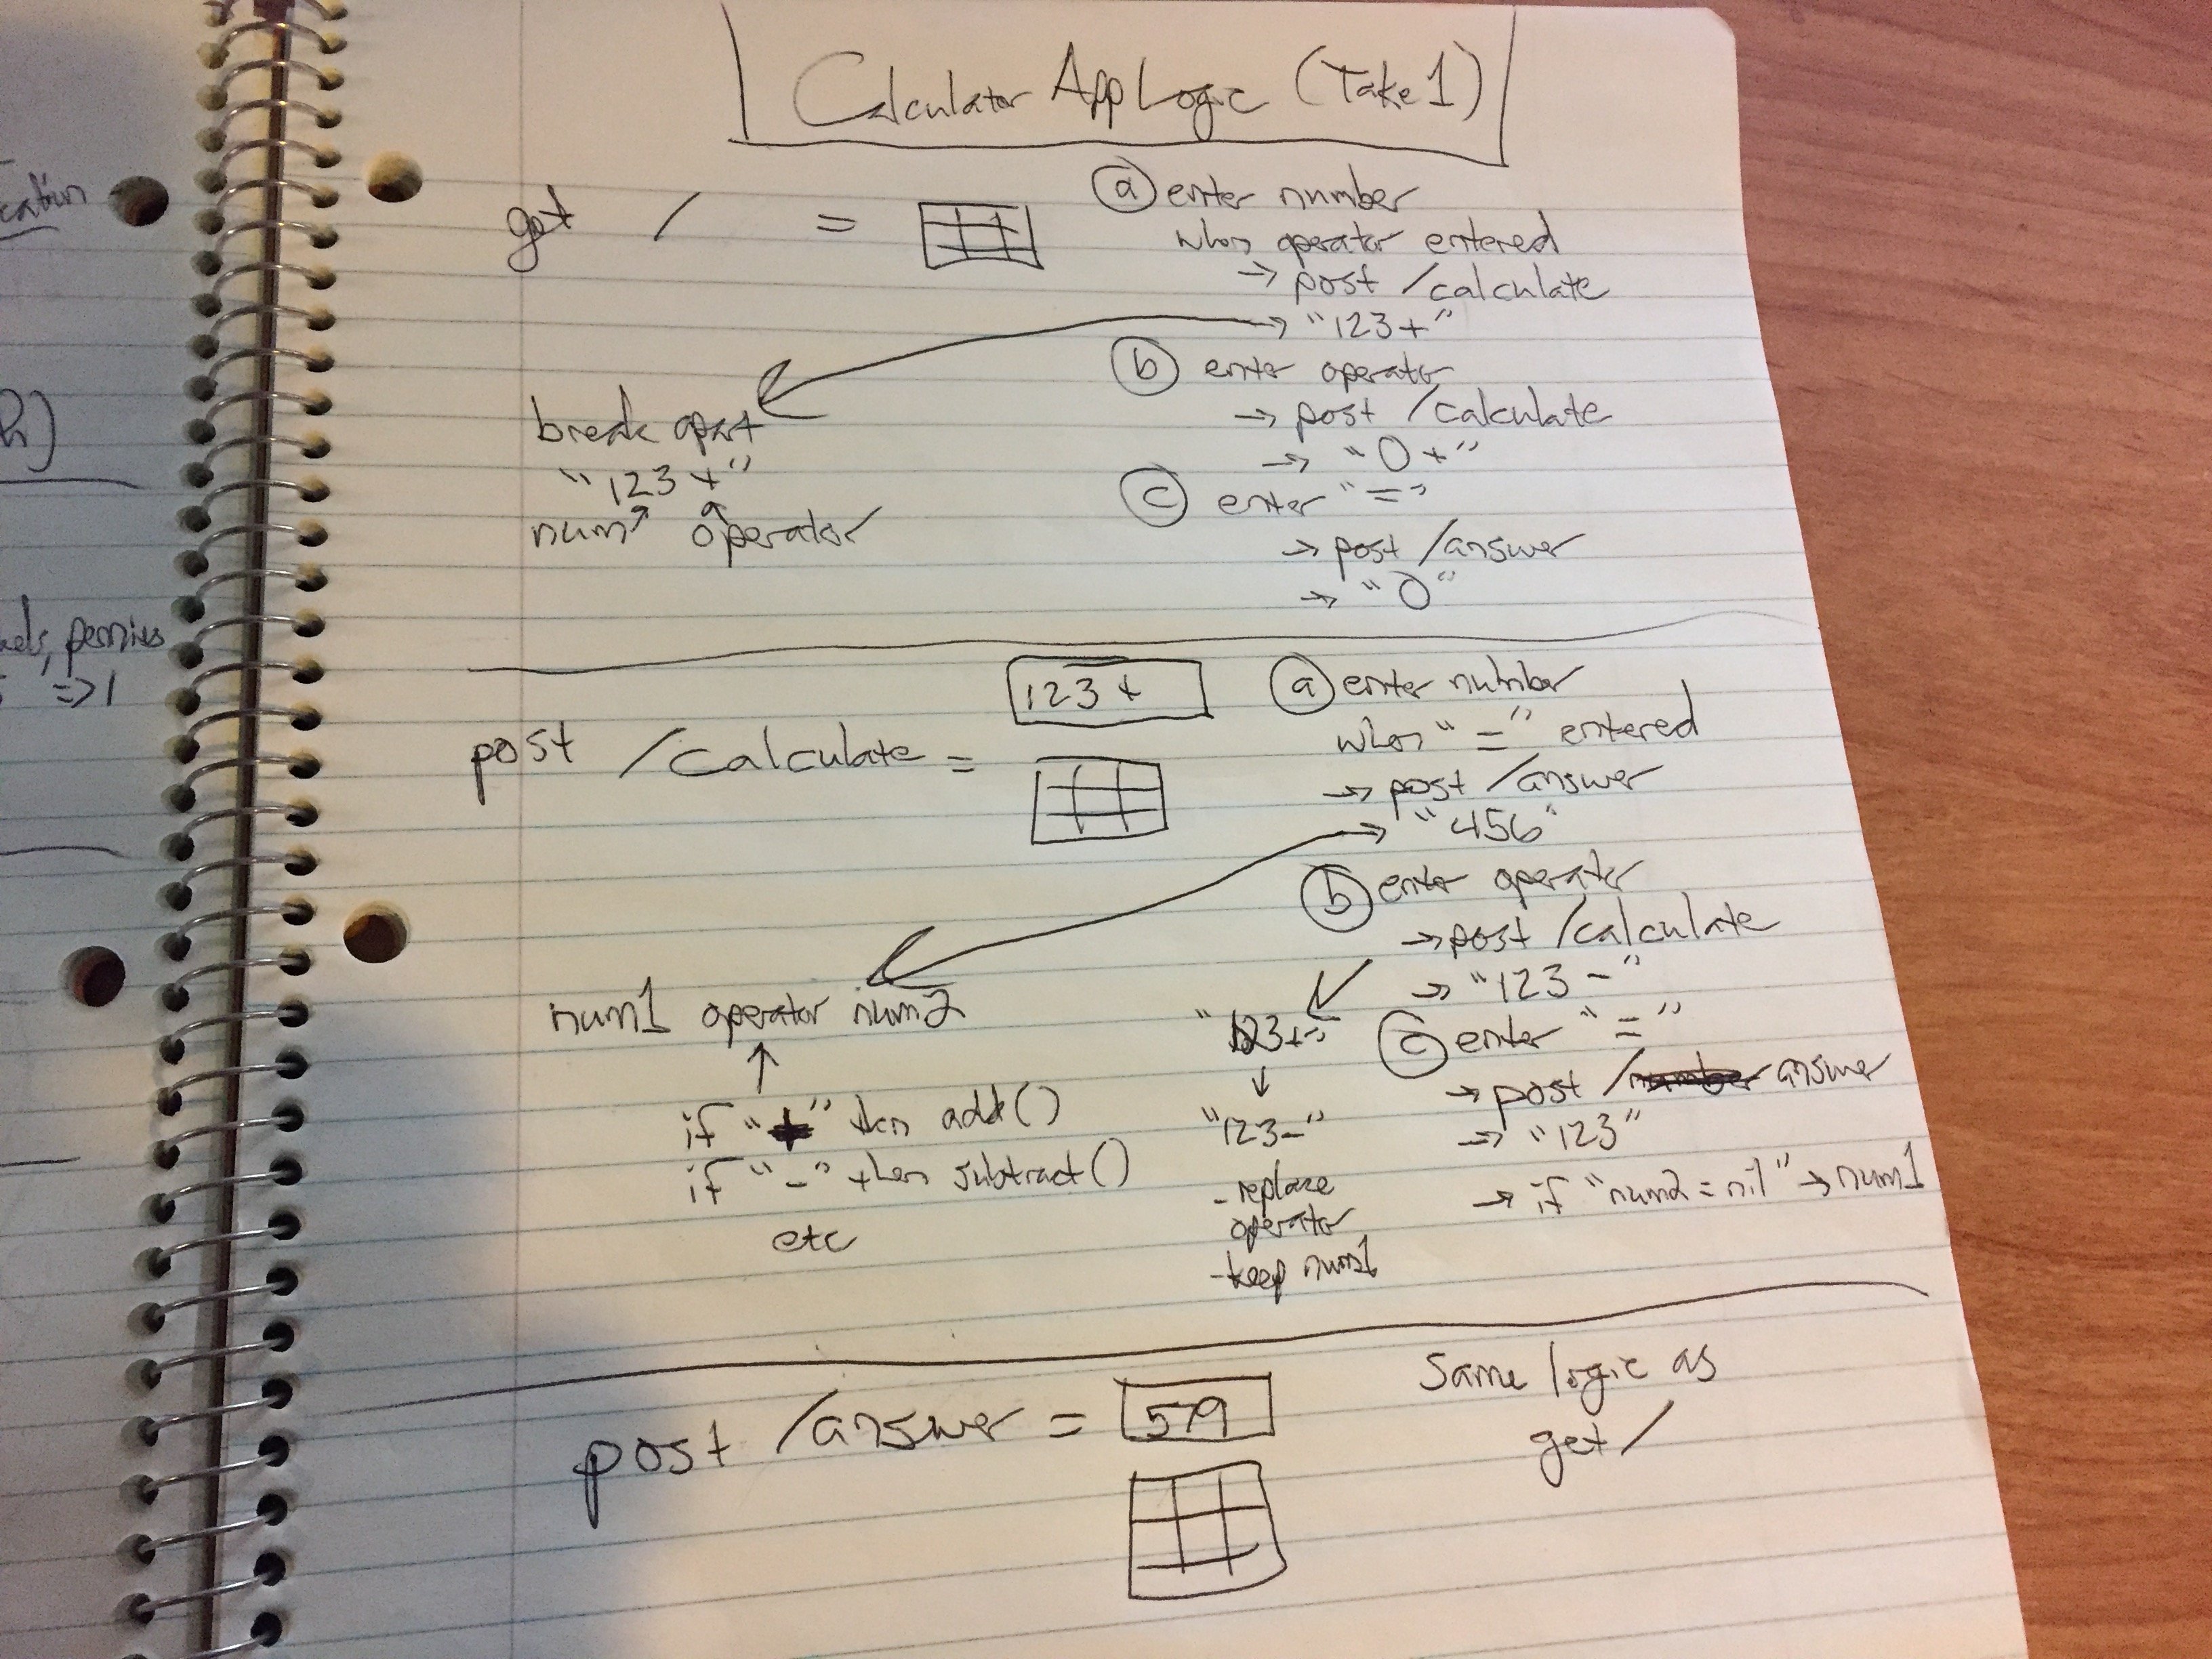 Calculator App Logic (Take 1)
get / =
ⓐ enter number
when operator entered
→ post /calculate
→ "123+"
ⓑ enter operator
→ post /calculate
→ "0+"
ⓒ enter "="
→ post /answer
→ "0"
break apart
"123+"
num operator
post /calculate =
123+
ⓐ enter number
when "=" entered
→ post /answer
→ "456"
ⓑ enter operator
→ post /calculate
→ "123-"
ⓒ enter "="
→ post / answer
→ "123"
→ if "num2 = nil" → num1
num1 operator num2
↑
if "+" then add()
if "-" then subtract()
etc
"123+-"
↓
"123-"
- replace
operator
- keep num1
post /answer =
579
same logic as
get /
cation
h)
pennies
=> 1